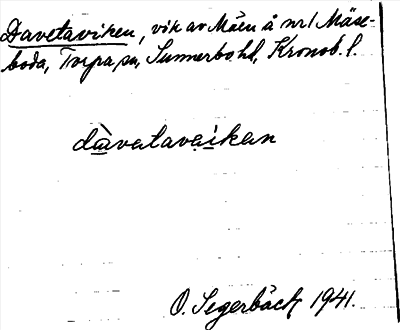 Davetaviken, vik av Mäen å nr 1 Mäse-
boda, Torpa sn, Sunnerbo hd, Kronob. l.
dàvatavæikan
O. Segerbäck 1941.